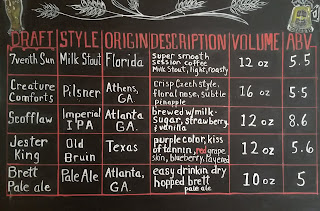 DRAFT STYLE ORIGIN DESCRIPTION VOLUME ABV.
7venth Sun Milk Stout Florida super smooth session coffee Milk Stout, light, roasty 12 oz 5.5
Creature Comforts Pilsner Athens, GA. crisp Czech style, floral nose, subtle pineapple 16 oz 5.5
Scofflaw Imperial IPA Atlanta GA. brewed w/milk-sugar, strawberry, & vanilla 12 oz 8.6
Jester King Old Bruin Texas purple color, kiss of tannin, red grape skin, blueberry, layered 12 oz 5.6
Brett Pale ale Pale Ale Atlanta, GA. easy drinkin dry hopped brett pale ale 10 oz 5